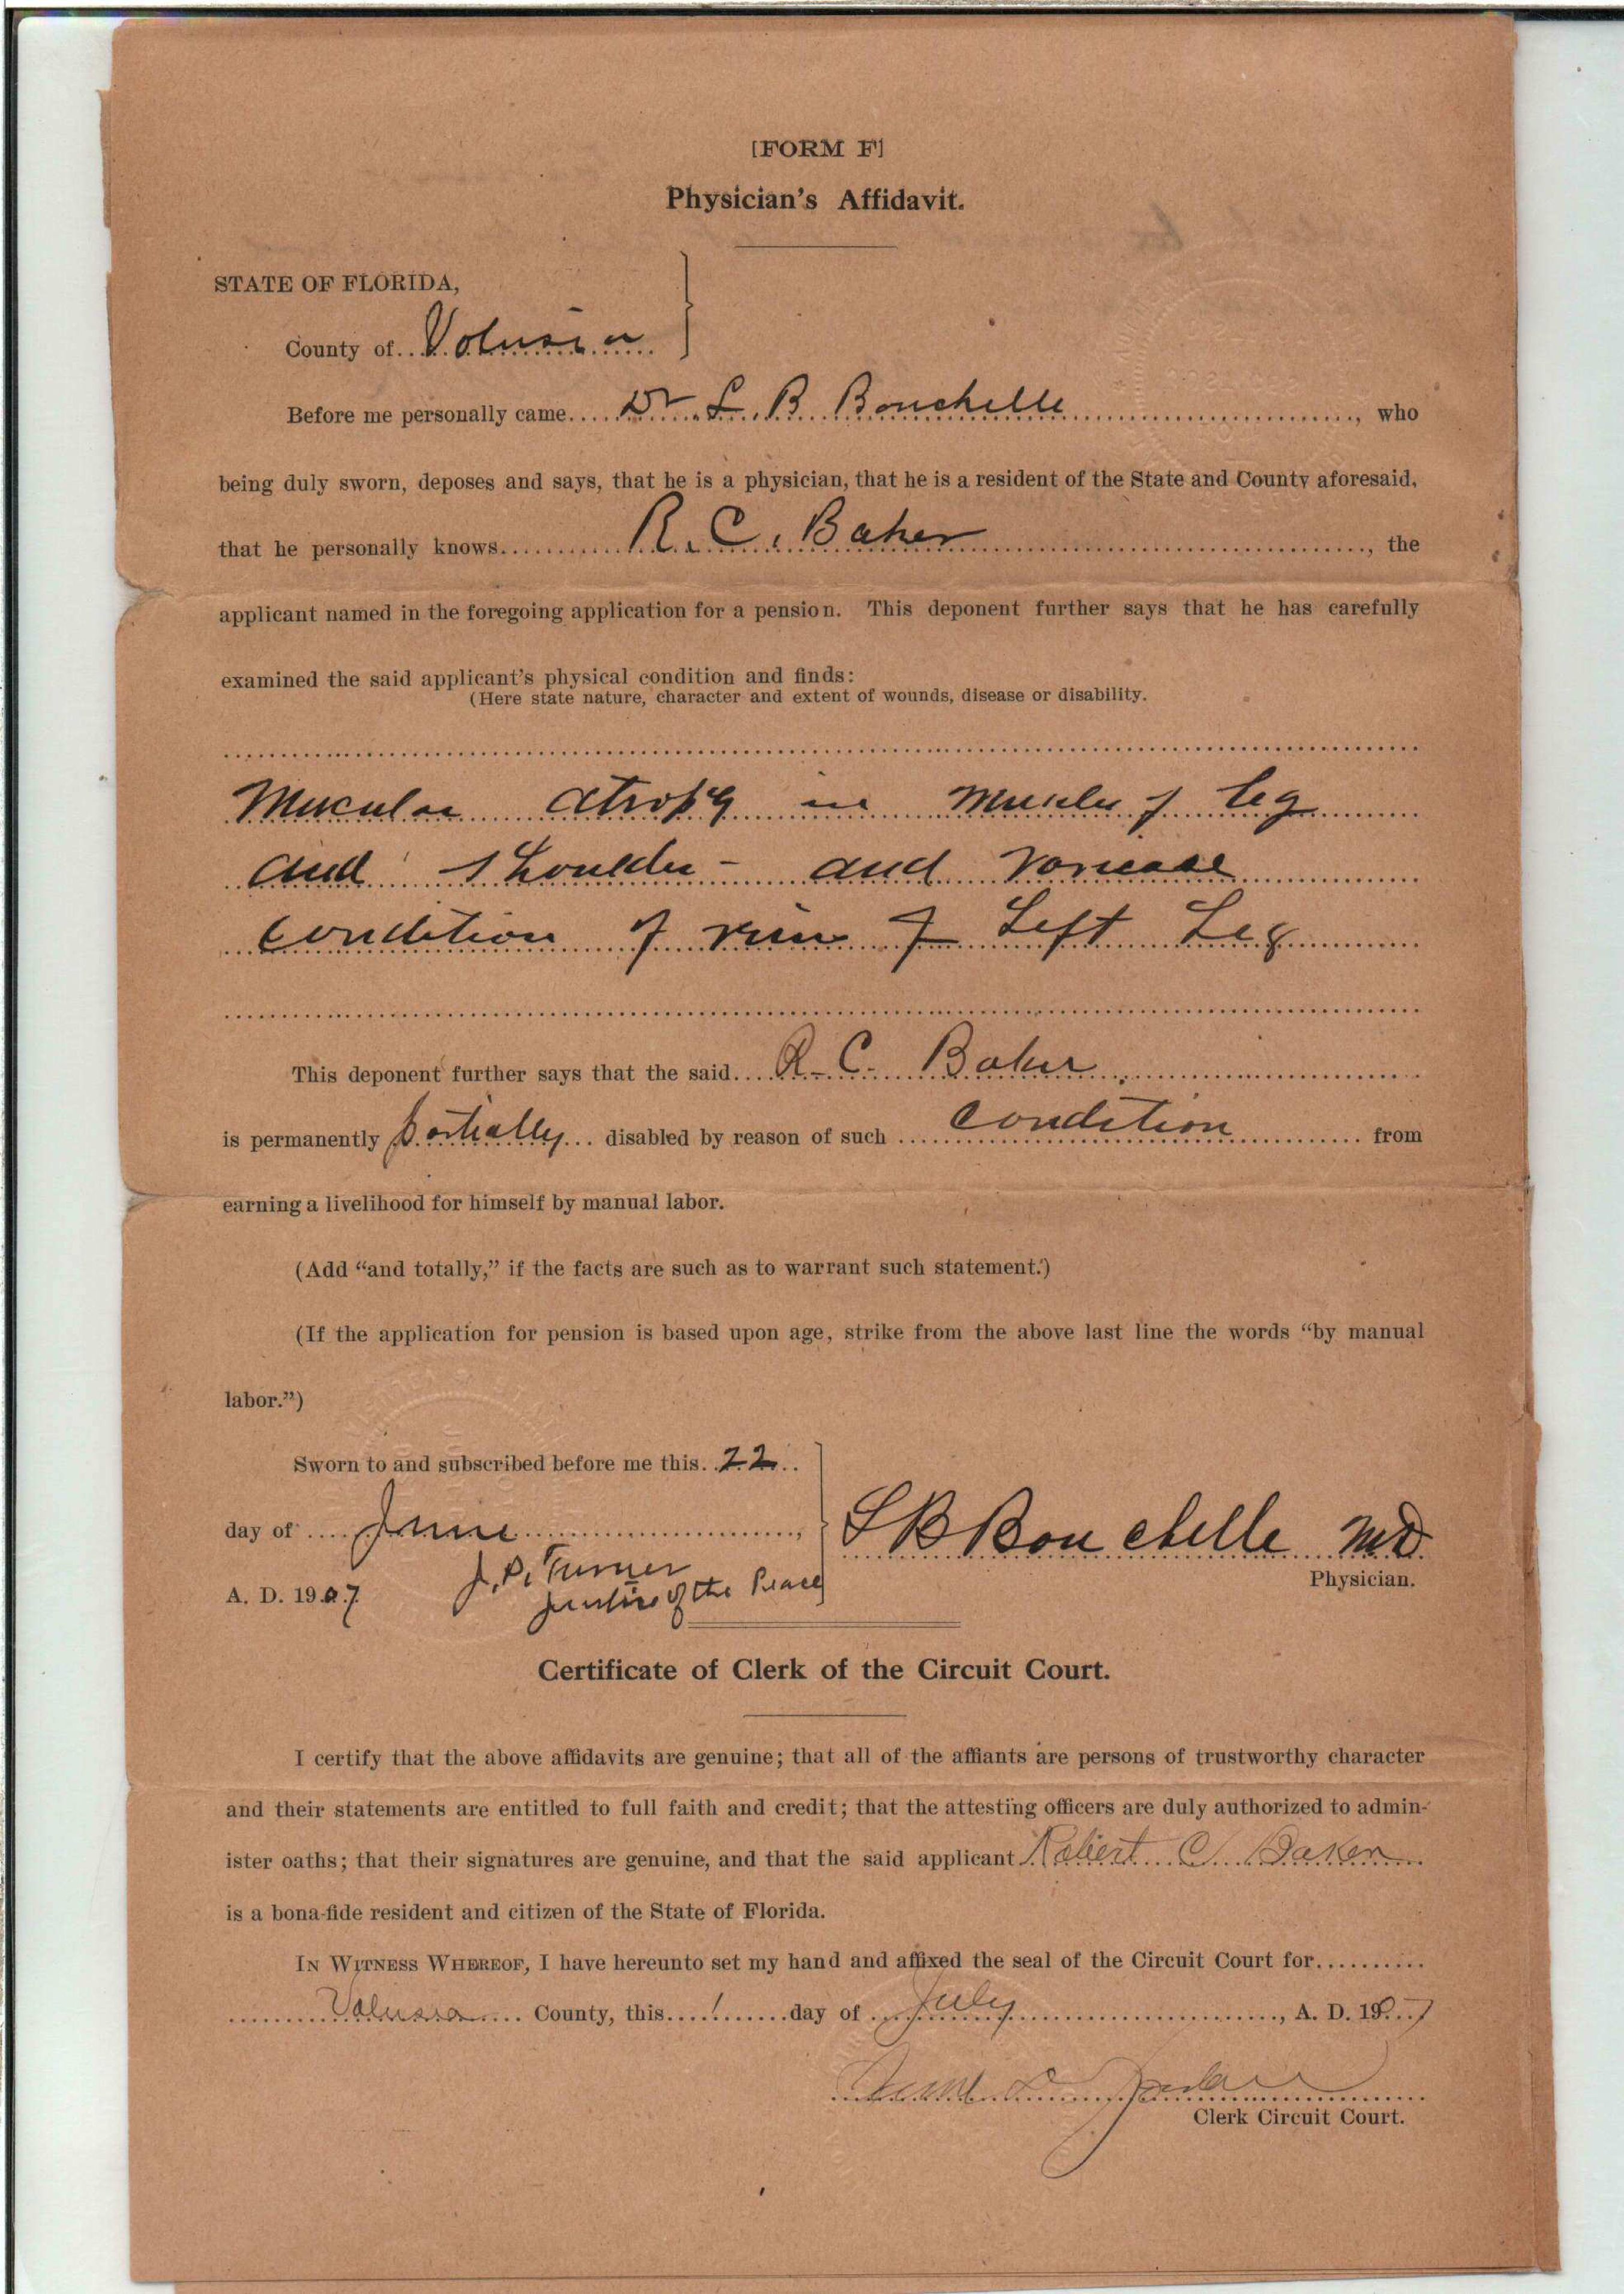 [FORM F]
Physician's Affidavit.
STATE OF FLORIDA,
County of Volusia
Before me personally came Dr. L. B. Bouchelle, who
being duly sworn, deposes and says, that he is a physician, that he is a resident of the State and County aforesaid,
that he personally knows R. C. Baker, the
applicant named in the foregoing application for a pension. This deponent further says that he has carefully
examined the said applicant's physical condition and finds:
(Here state nature, character and extent of wounds, disease or disability.
Muscular atrophy in muscles of leg
and shoulder - and varicose
condition of vein of Left Leg
This deponent further says that the said R. C. Baker
is permanently partially disabled by reason of such condition from
earning a livelihood for himself by manual labor.
(Add "and totally," if the facts are such as to warrant such statement.)
(If the application for pension is based upon age, strike from the above last line the words "by manual
labor.")
Sworn to and subscribed before me this 22
day of June,
L B Bouchelle MD
Physician.
A. D. 1907
J. P. Turner
Justice of the Peace
Certificate of Clerk of the Circuit Court.
I certify that the above affidavits are genuine; that all of the affiants are persons of trustworthy character
and their statements are entitled to full faith and credit; that the attesting officers are duly authorized to admin-
ister oaths; that their signatures are genuine, and that the said applicant Robert C. Baker
is a bona-fide resident and citizen of the State of Florida.
IN WITNESS WHEREOF, I have hereunto set my hand and affixed the seal of the Circuit Court for
Volusia County, this 1 day of July, A. D. 1907
Clerk Circuit Court.